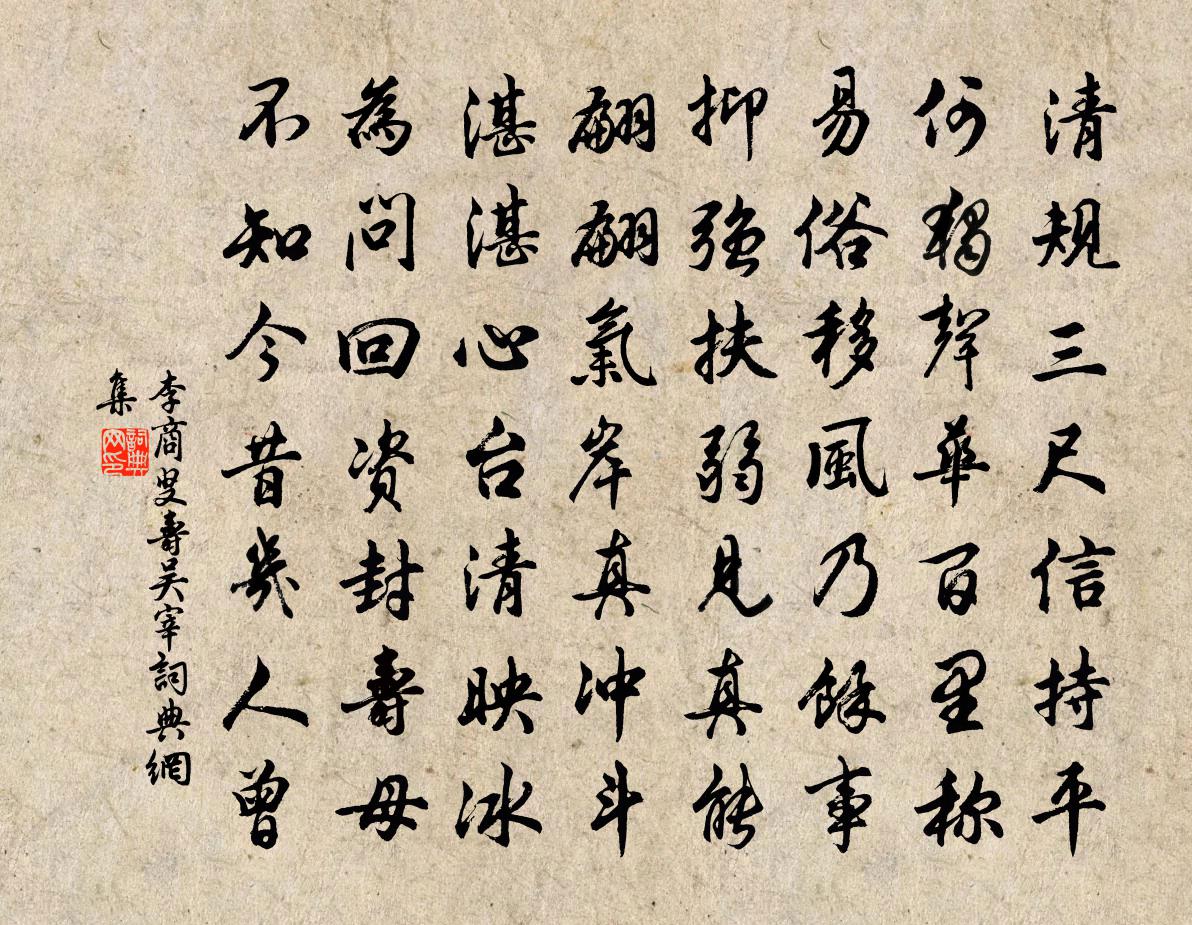 清規三尺信持平
何獨聲華百里称
易俗移風乃餘事
抑強扶弱見真能
翩翩氣岸真冲斗
湛湛心台清映冰
為問回資封壽母
不知今昔幾人曾
李商叟壽吴宰詞典網
集
詞典
网印